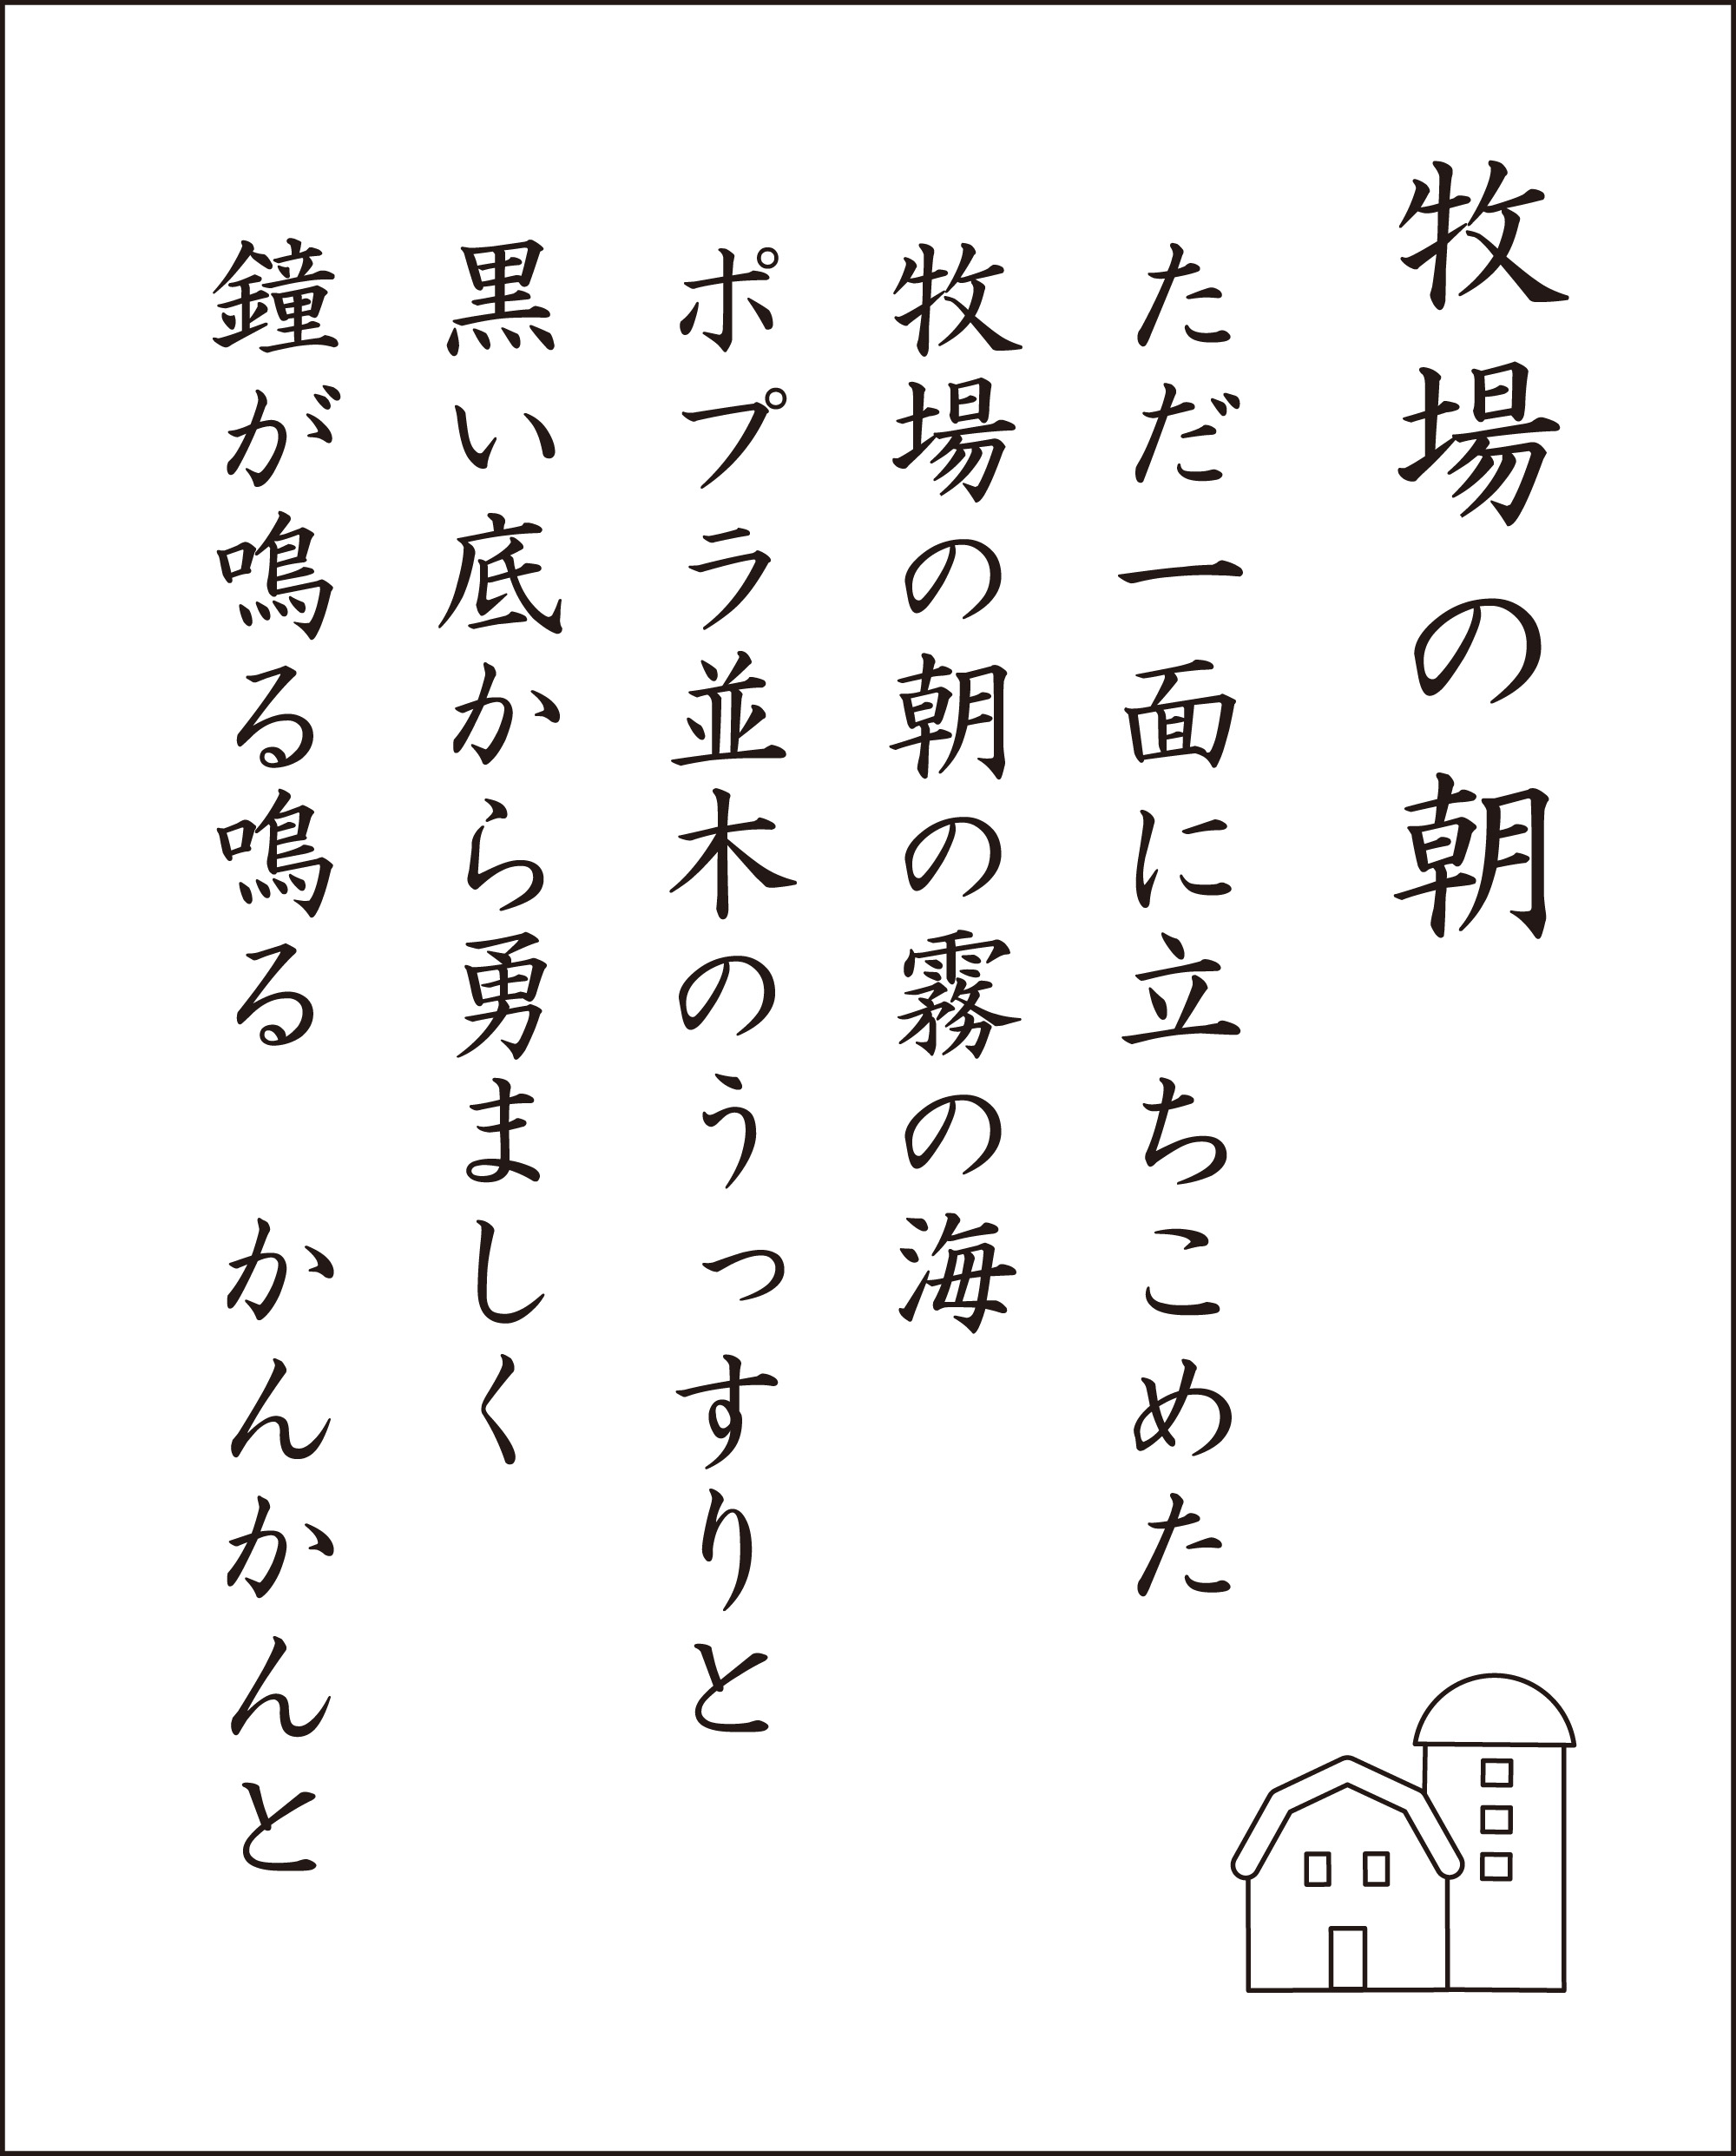 牧場の朝
ただ一面に立ちこめた
牧場の朝の霧の海
ポプラ並木のうっすりと
黒い底から勇ましく
鐘が鳴る鳴る　かんかんと